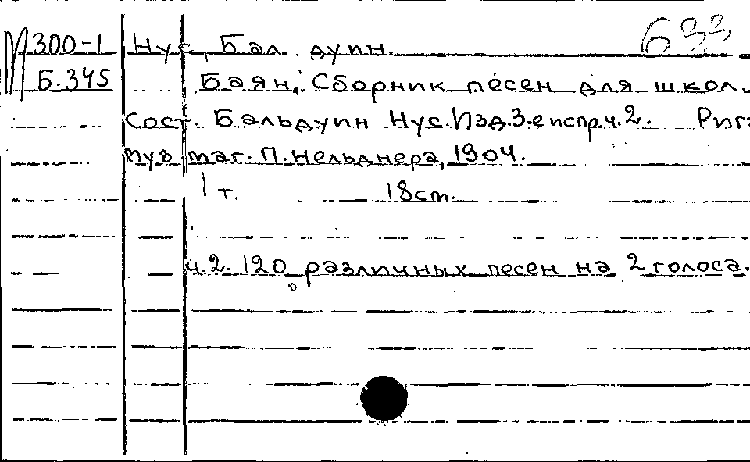 М300-1 Нус, Бал дуин. 633
Б.345 Баян. Сборник песен для школ.
Сост. Бальдуин Нус. Изд.3.е испр.ч.2. Риг
муз маг. П. Нельднера, 1904.
1 т. 18cm.
ч.2. 120 различных песен на 2 голоса.